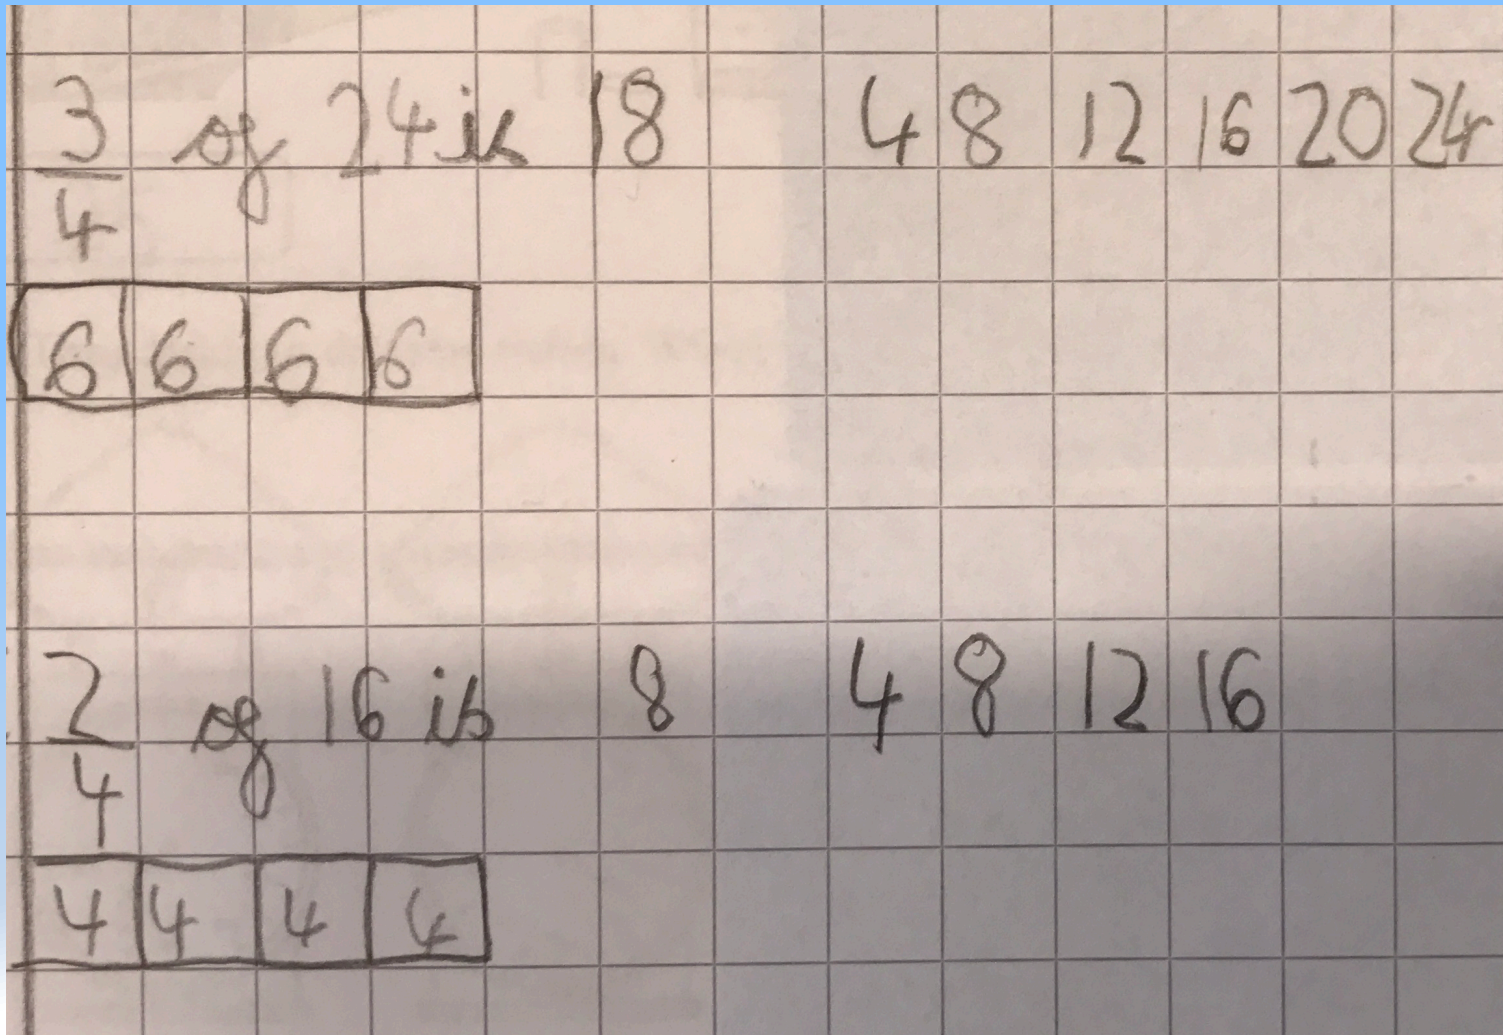 3/4 of 24 is 18 4 8 12 16 20 24
6 6 6 6
2/4 of 16 is 8 4 8 12 16
4 4 4 4